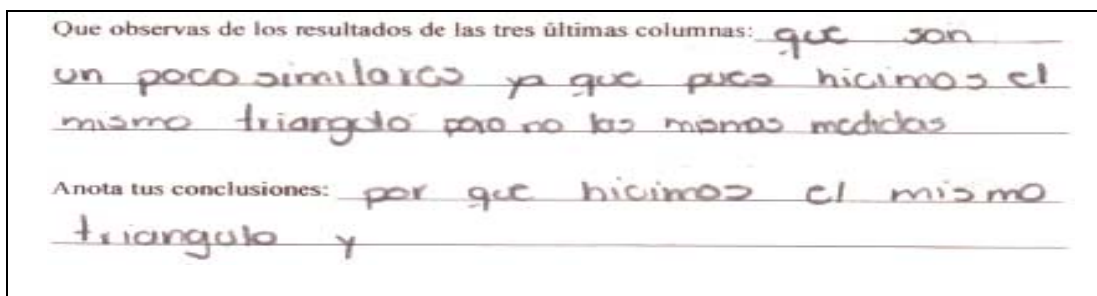 Que observas de los resultados de las tres últimas columnas: que son
un poco similares ya que pues hicimos el
mismo triangulo pero no las mismas medidas
Anota tus conclusiones: por que hicimos el mismo
triangulo y